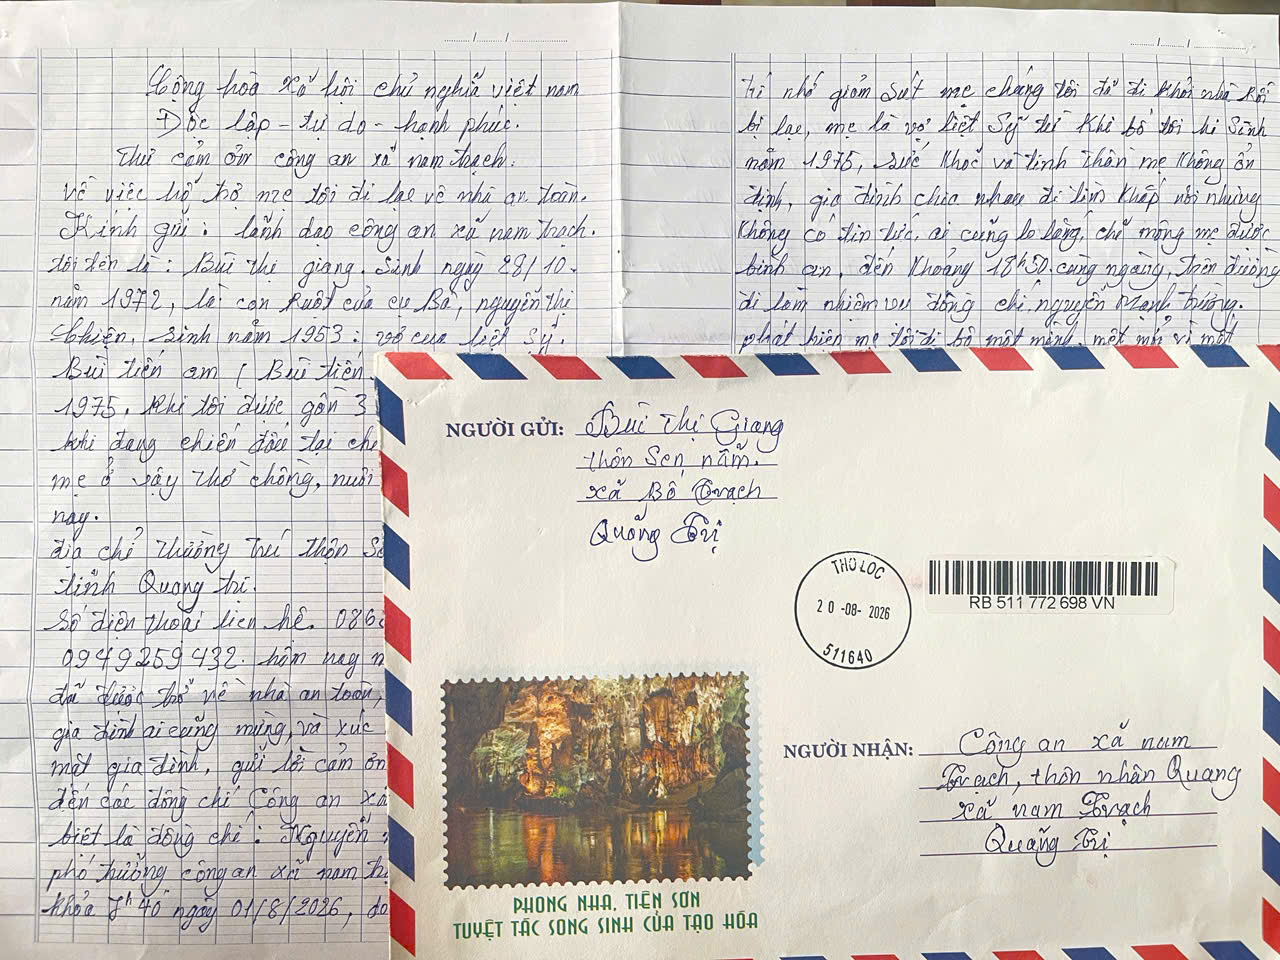 Cộng hòa xã hội chủ nghĩa việt nam
Độc lập - tự do - hạnh phúc.
Thư cảm ơn công an xã nam trạch.
về việc hỗ trợ mẹ tôi đi lạc về nhà an toàn.
Kính gửi: lãnh đạo công an xã nam trạch.
tôi tên là: Bùi thị giang. Sinh ngày 28/10.
năm 1972, là con ruột của cụ Bà, nguyễn thị
chiện, sinh năm 1953: vợ của liệt sỹ.
Bùi tiến am ( Bùi tiến
1975. Khi tôi được gần 3
khi đang chiến đấu tại
mẹ ở vậy thờ chồng, nuôi
nay.
địa chỉ thường trú thôn
tỉnh Quảng trị.
Số điện thoại liên hệ. 086
0949259432. hôm nay
đã được trở về nhà an toàn,
gia đình ai cũng mừng, và xúc
mặt gia đình, gửi lời cảm ơn
đến các đồng chí Công an xã
biệt là đồng chí: Nguyễn
phó trưởng công an xã nam
khỏa 7h40 ngày 01/8/2026, do
trí nhớ giảm sút mẹ chúng tôi đã đi khỏi nhà rồi
bị lạc, mẹ là vợ liệt sỹ từ khi bố tôi hi sinh
năm 1975, sức khoẻ và tinh thần mẹ không ổn
định, gia đình chia nhau đi tìm khắp nơi nhưng
không có tin tức, ai cũng lo lắng, chỉ mong mẹ được
bình an, đến khoảng 18h50. cùng ngày, trên đường
đi làm nhiệm vụ đồng chí nguyễn mạnh trường.
phát hiện mẹ tôi đi bộ một mình, mệt mỏi vì một
NGƯỜI GỬI: Bùi Thị Giang
thôn sen nằm.
xã Bố Trạch
Quảng Trị
THỌ LỘC
20-08-2026
511640
RB 511 772 698 VN
NGƯỜI NHẬN: Công an xã nam
Trạch, thôn nhân Quang
xã nam Trạch
Quảng Trị
PHONG NHA, TIÊN SƠN
TUYỆT TÁC SONG SINH CỦA TẠO HÓA